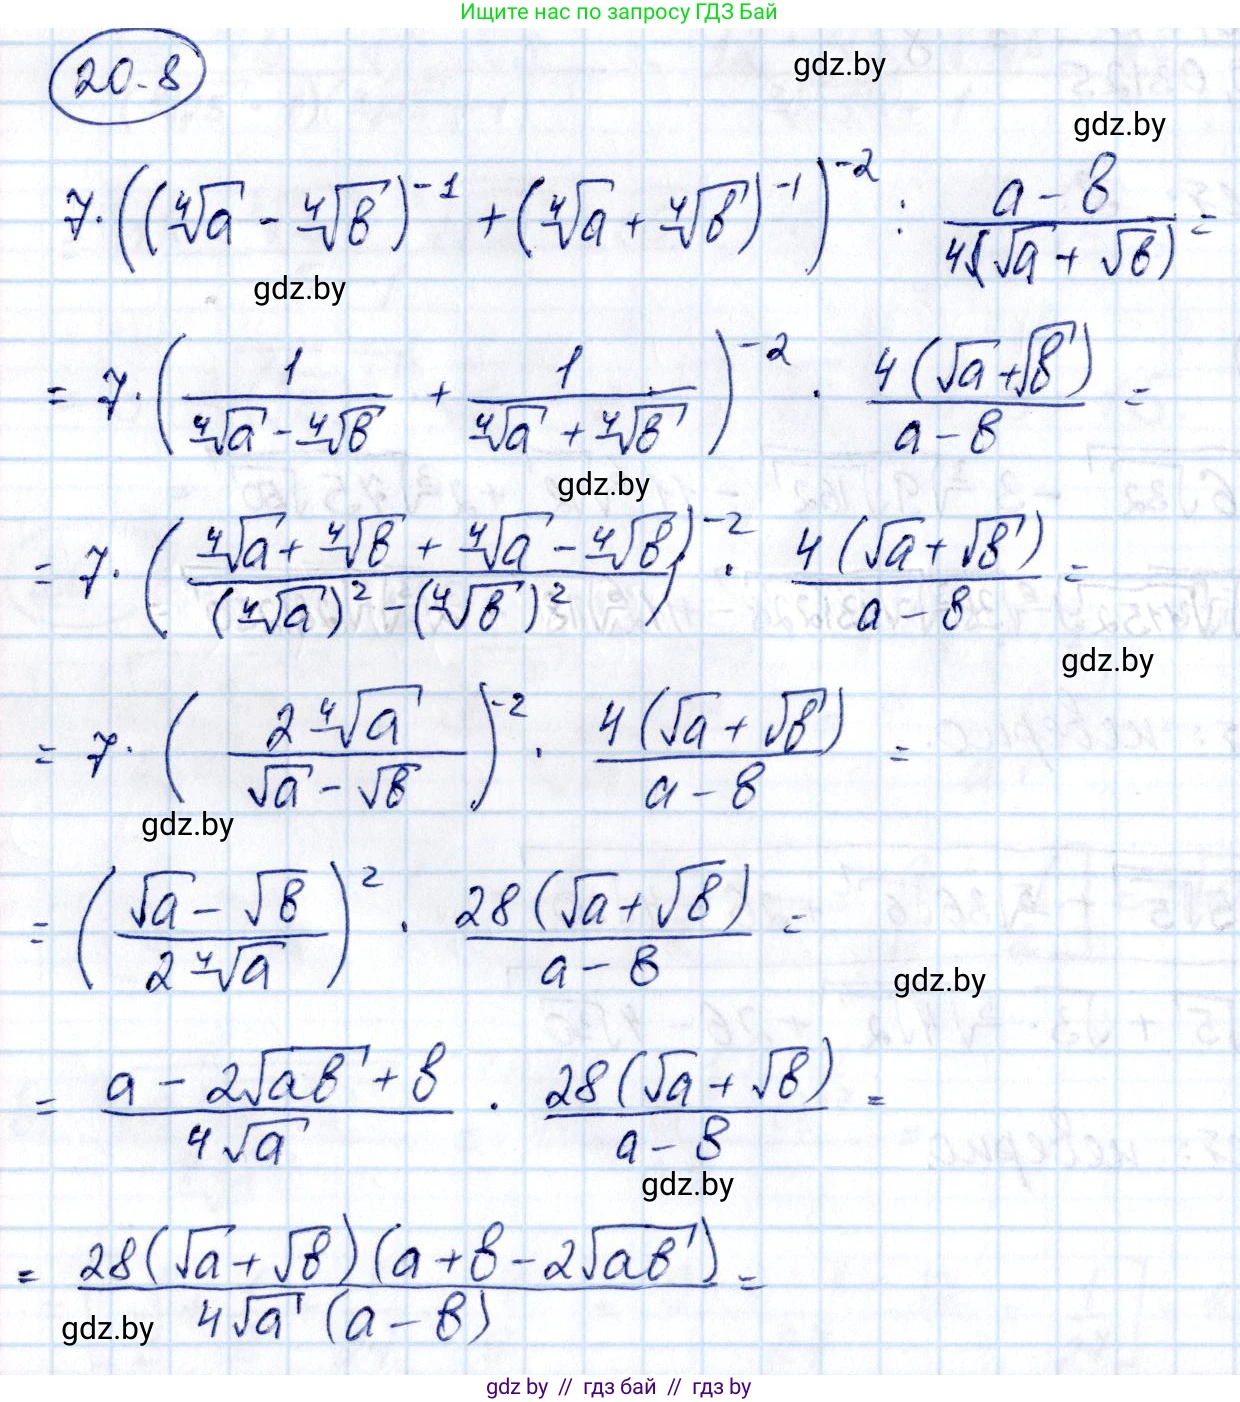 Ищите нас по запросу ГДЗ Бай
20.8
gdz.by
gdz.by
7·((⁴√a - ⁴√b)⁻¹ + (⁴√a + ⁴√b)⁻¹)⁻² : (a - b)/(4(√a + √b)) =
gdz.by
= 7·(1/(⁴√a - ⁴√b) + 1/(⁴√a + ⁴√b))⁻² · (4(√a + √b))/(a - b) =
gdz.by
= 7·((⁴√a + ⁴√b + ⁴√a - ⁴√b)/((⁴√a)² - (⁴√b)²))⁻² · (4(√a + √b))/(a - b) =
gdz.by
= 7·((2⁴√a)/(√a - √b))⁻² · (4(√a + √b))/(a - b) =
gdz.by
= ((√a - √b)/(2⁴√a))² · (28(√a + √b))/(a - b) =
gdz.by
= (a - 2√ab + b)/(4√a) · (28(√a + √b))/(a - b) =
gdz.by
= (28(√a + √b)(a + b - 2√ab))/(4√a (a - b)) =
gdz.by
gdz by // гдз бай // гдз by